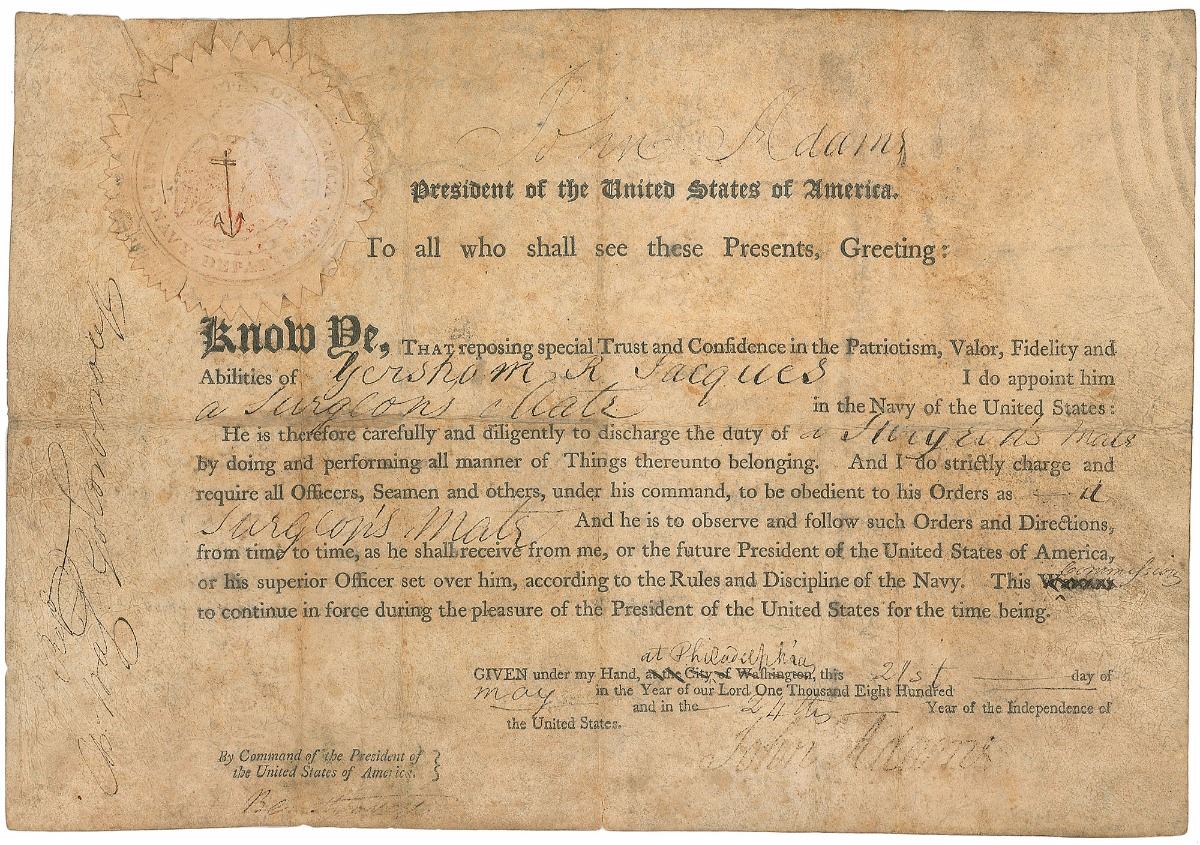 John Adams
President of the United States of America.
To all who shall see these Presents, Greeting:
Know Ye, THAT reposing special Trust and Confidence in the Patriotism, Valor, Fidelity and
Abilities of Gersham R Jacques I do appoint him
a Surgeons Mate in the Navy of the United States:
He is therefore carefully and diligently to discharge the duty of a Surgeon's Mate
by doing and performing all manner of Things thereunto belonging. And I do strictly charge and
require all Officers, Seamen and others, under his command, to be obedient to his Orders as a
Surgeon's Mate And he is to observe and follow such Orders and Directions,
from time to time, as he shall receive from me, or the future President of the United States of America,
Commission
or his superior Officer set over him, according to the Rules and Discipline of the Navy. This
to continue in force during the pleasure of the President of the United States for the time being.
at Philadelphia
GIVEN under my Hand, at the City of Washington, this 21st day of
may in the Year of our Lord One Thousand Eight Hundred
and in the 24th Year of the Independence of
the United States.
John Adams
By Command of the President of
the United States of America.
Ben Stoddert